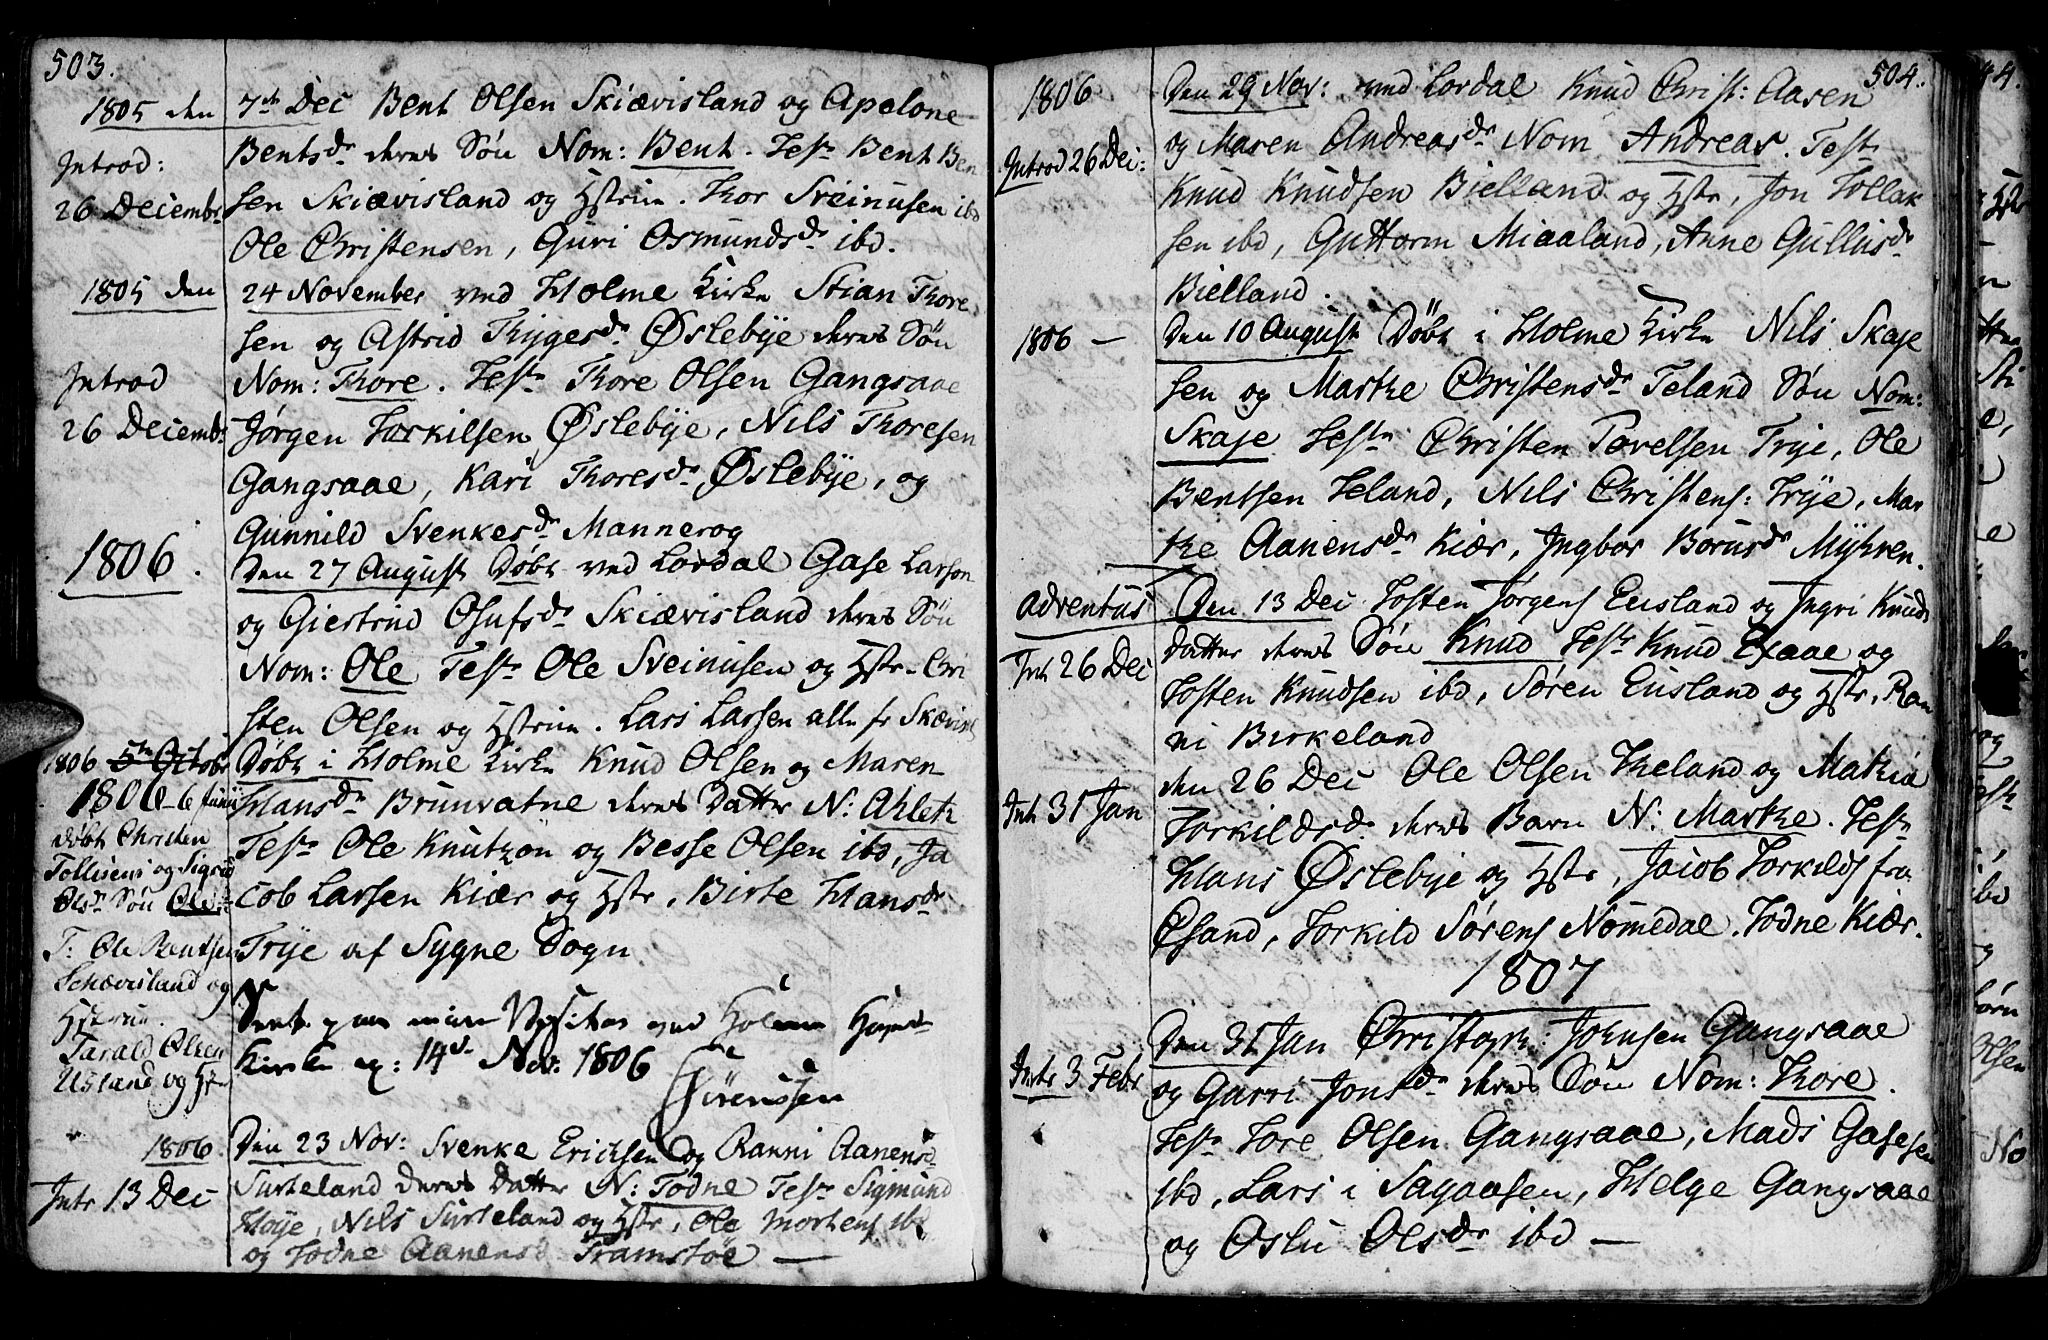 503.
1805 den 7de Dec Bent Olsen Skiævisland og Apelone
Introd: Bentsdr deres Søn Nom: Bent. Testr Bent Ben
26 Decembr sen Skiævisland og Hstrue. Thor Sveinusen ibd
Ole Christensen, Guri Osmundsdr ibd.
1805 den 24 November ved Holme Kirke Stian Thore
sen og Astrid Thygesdr Øslebye deres Søn
Introd Nom: Thore. Testr Thore Olsen Gangsaae
26 Decembr Jørgen Torkilsen Øslebye, Nils Thoresen
Gangsaae, Kari Thoresdr Øslebye, og
Gunnild Svenkesdr Mannerog
1806. Den 27 August Døbt ved Lordal Gase Larson
og Giertrud Osufsdr Skiævisland deres Søn
Nom: Ole Testr Ole Sveinusen og Hstr. Chri
sten Olsen og Hstrue. Lars Larsen alle fr Skævisl
1806 5te Octobr Døbt i Holme Kirke Knud Olsen og Maren
Hansdr Brunvatne deres Datter N: Ahlet
Testr Ole Knutzon og Besse Olsen ibd, Ja
cob Larsen Kiær og Hstr, Birte Hansdr
Trye af Sygne Sogn
1806 6 Junii
døbt Chrsten
Tollisens og Sigrid
Olsdr Søn Ole
T: Ole Bentsen
Schævisland og
Hstrue.
Tarald Olsen
Usland og Hst
Holme
Kirke 14de Nov: 1806
Sörenssen
1806. Den 23 Nov: Svenke Ericksen og Ranni Aanensd
Intr 13 Dec Surteland deres Datter N: Todne Testr Sigmund
Høye, Nils Surteland og Hstr, Ole Mortens ibd
og Todne Aanensd Tramstøe —
504.
1806 Den 29 Nov: ved Lordal Knud Christ: Aasen
og Maren Andreasdr Nom Andreas. Testr
Introd 26 Dec: Knud Knudsen Bielland og Hstr, Jon Tollak
sen ibd, Guttorm Miaaland, Anne Gullusdr
Bielland.
1806 — Den 10 August Døbt i Holme Kirke Nils Skaje
sen og Marthe Christensdr Teland Søn Nom:
Skaje Testr Christen Tarelsen Trye, Ole
Bentsen Teland, Nils Christens: Trye, Mar
the Aanensdr Kiær, Ingbor Borusdr Myhren.
Adventus Den 13 Dec Tosten Jørgens Eusland og Ingri Knuds
Int 26 Dec Datter deres Søn Knud Testr Knud Exaae og
Tosten Knudsen ibd, Søren Eusland og Hstr, Ran
ni Birkeland
den 26 Dec Ole Olsen Theland og Mathia
Int 31 Jan Torkildsdr deres Barn N: Marthe. Testr
Hans Øslebye og Hstr, Jacob Torkilds fra
Øsand, Torkild Sørens Nømedal. Todne Kiær.
1807
Den 31 Jan Christoph: Johnsen Gangsaae
Intr 3 Febr og Garri Jonsdr deres Søn Nom: Thore.
Testr Tore Olsen Gangsaae, Mads Gasesen
ibd, Lars i Sagaasen, Helge Gangsaae
og Oslu Olsdr ibd —